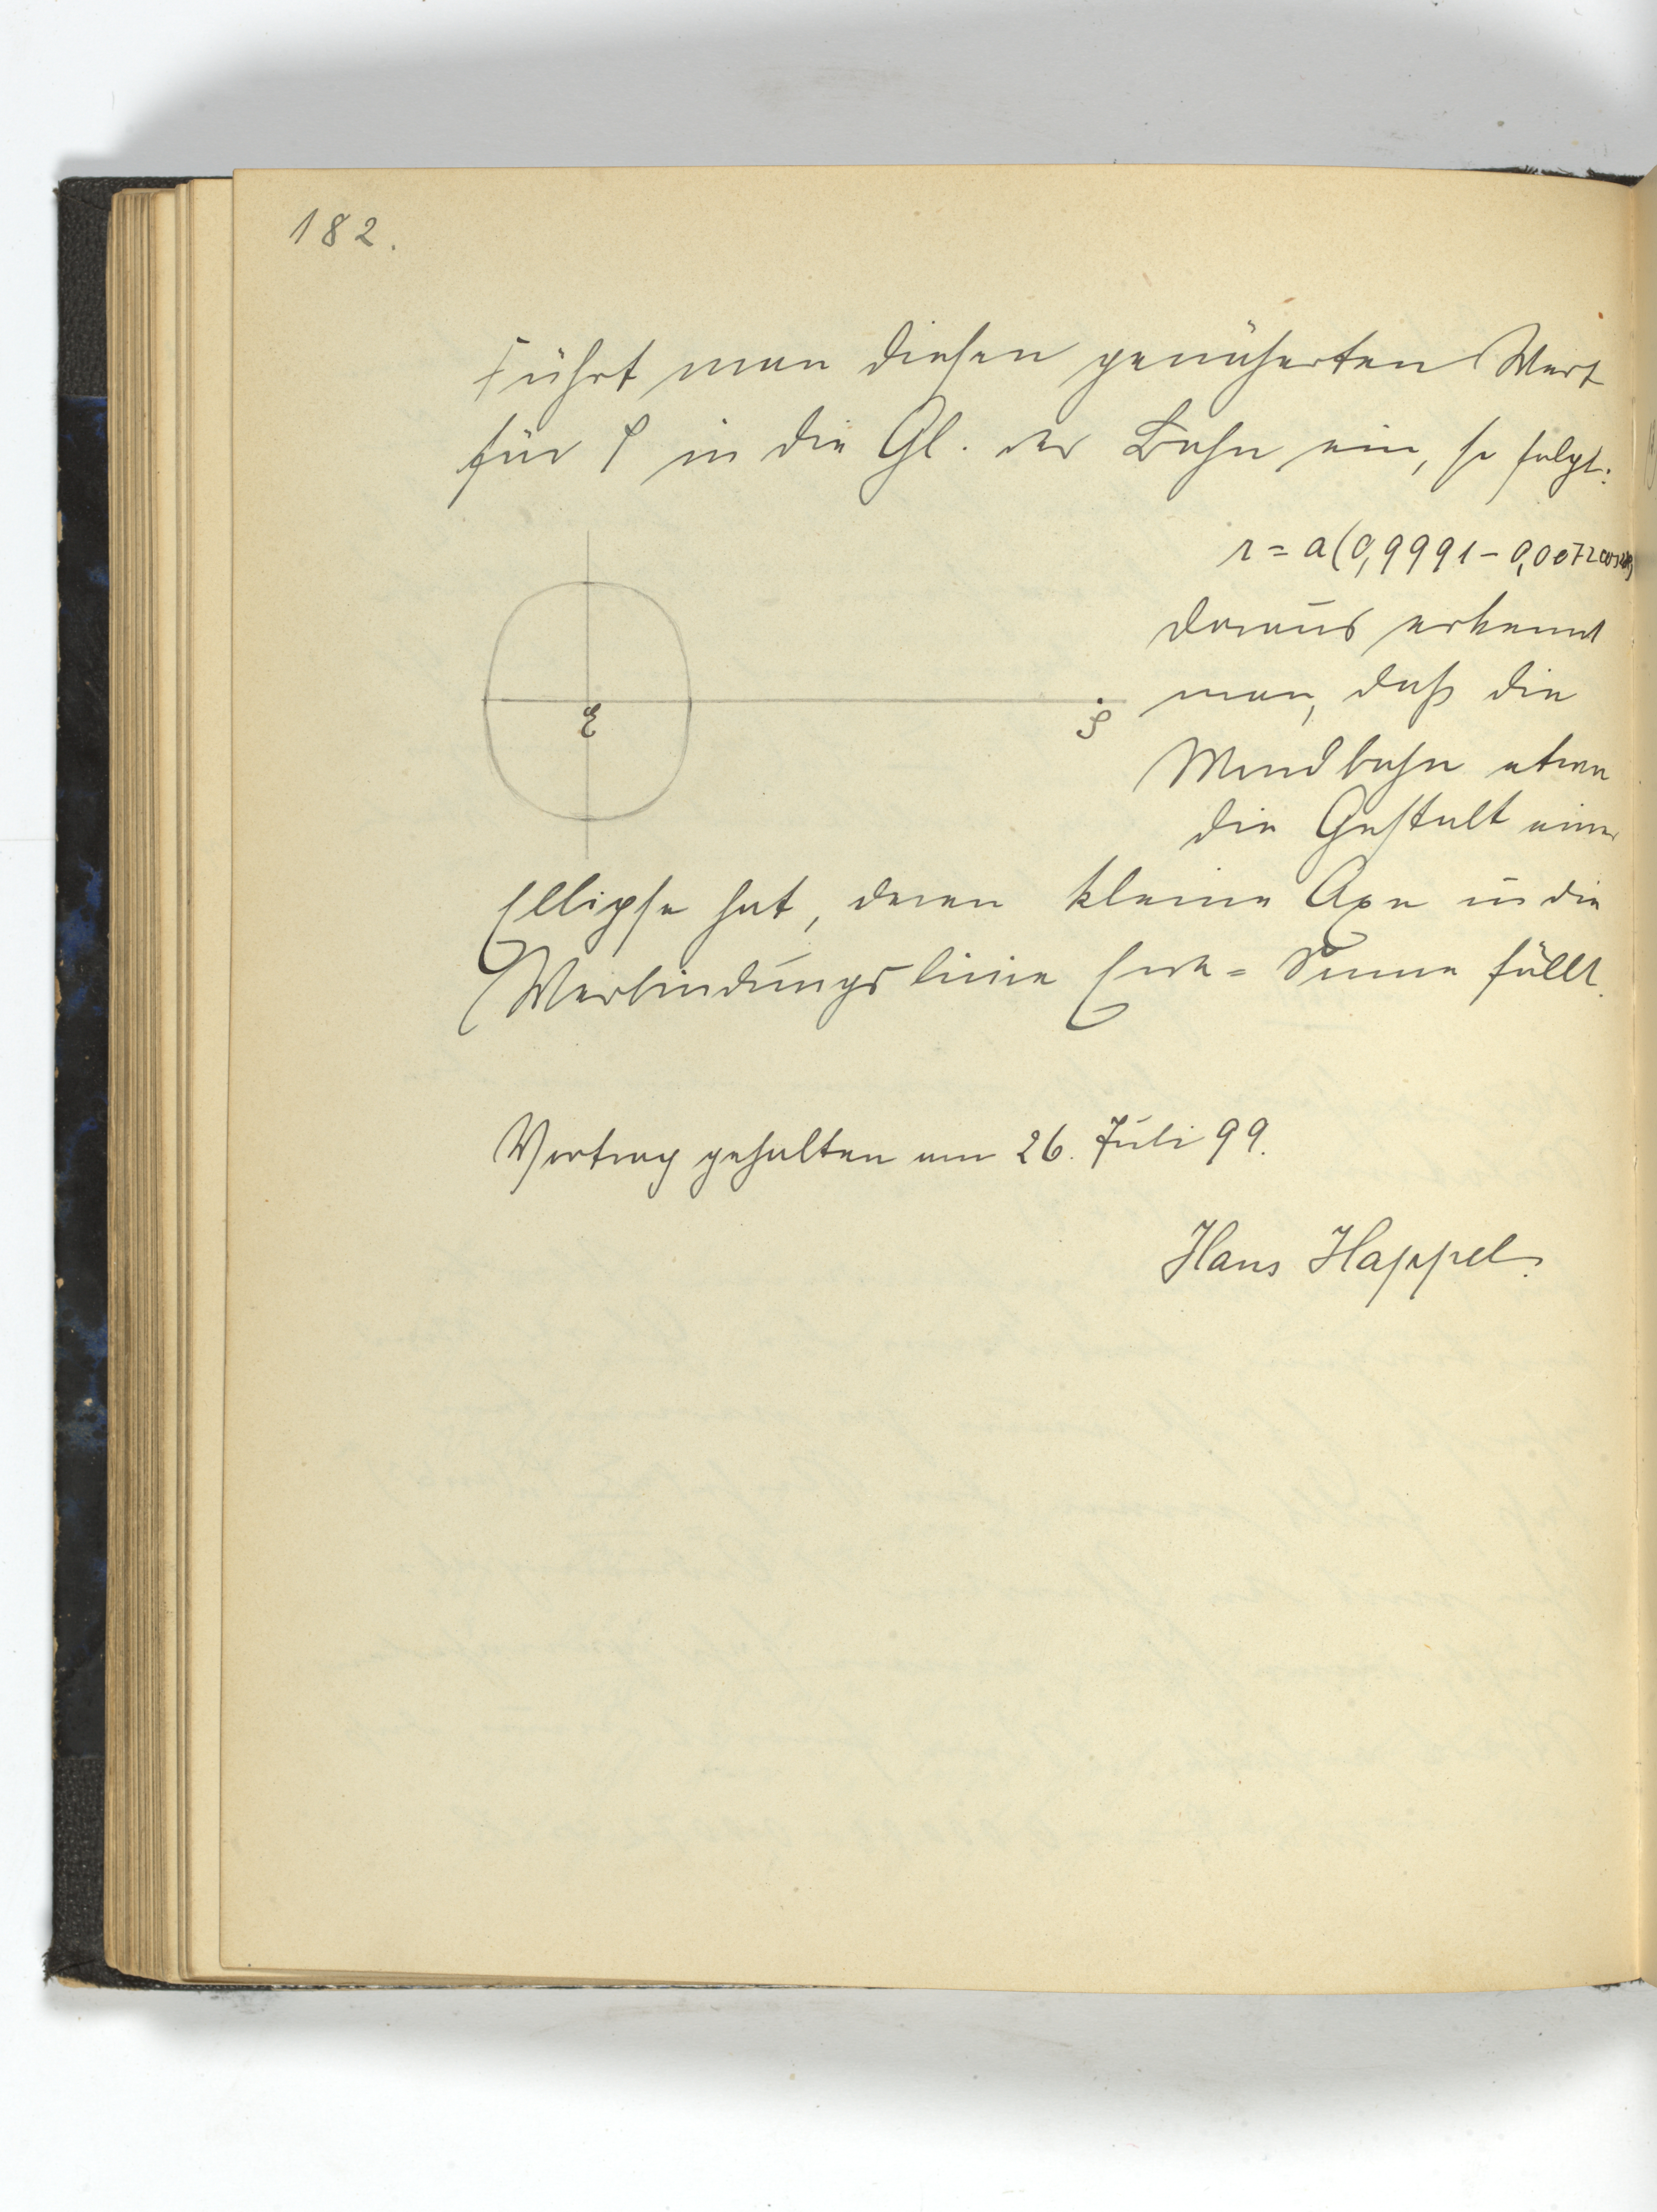 182.
Führt man diesen genäherten Wert
für ρ in die Gl. der Bahn ein, so folgt:
r = a(0,9991 - 0,0072 cos2φ)
daraus erkennt
man, daß die
Mondbahn etwa
die Gestalt einer
Ellipse hat, deren kleine Axe in die
Verbindungslinie Erde = Sonne fällt.
E
S
Vortrag gehalten am 26. Juli 99.
Hans Happel.